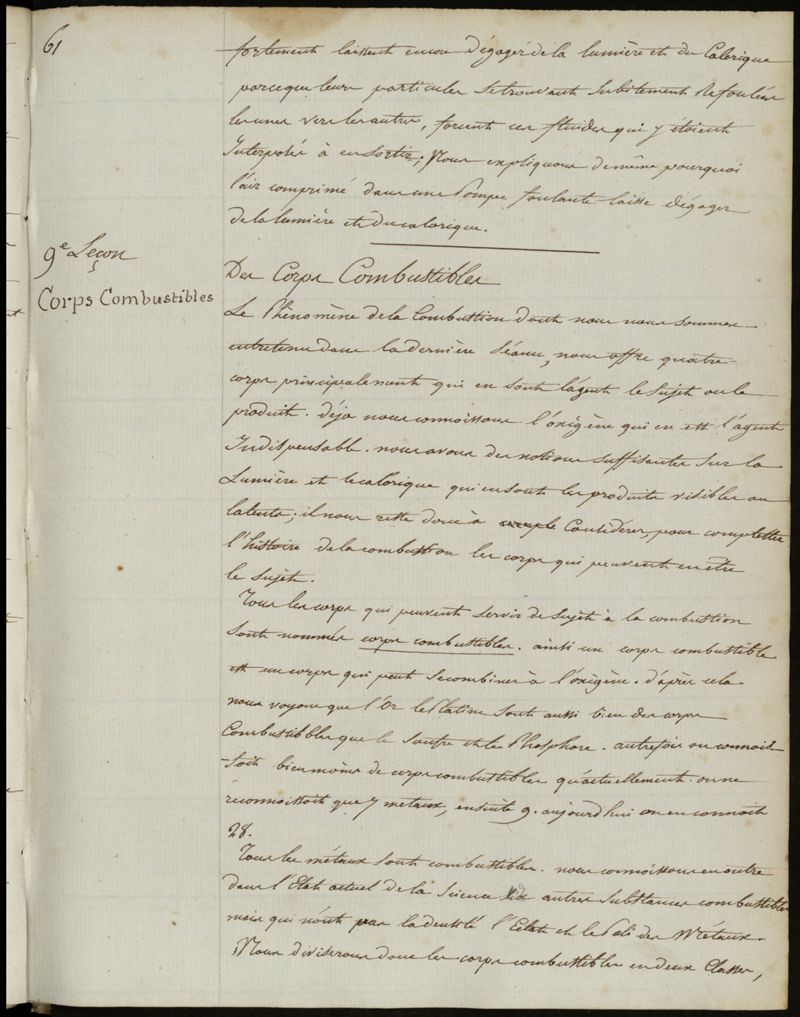 61
fortement laissent encore dégager de la lumière et du Calorique
parceque leurs particules se trouvant subitement refoulées
les unes vers les autres, forcent ces fluides qui y étoient
Interposés à en sortir; Nous expliquons de même pourquoi
l'air comprimé dans une Pompe foulante laisse dégager
de la lumière et du calorique.
9e Leçon
Corps Combustibles
Des Corps Combustibles
Le Phénomène de la Combustion dont nous nous sommes
entretenu dans la dernière Séance, nous offre quatre
corps principalement qui en sont l'agent le sujet ou le
produit. déja nous connoissons l'oxigène qui en est l'agent
Indispensable. nous avons des notions suffisantes sur la
Lumière et le calorique qui en sont les produits visibles ou
latents; il nous reste donc à Considérer pour completter
l'histoire de la combustion les corps qui peuvent en être
le sujet.
Tous les corps qui peuvent servir de sujet à la combustion
sont nommés corps combustibles. ainsi un corps combustible
est un corps qui peut se combiner à l'oxigène. d'après cela
nous voyons que l'Or le Platine sont aussi bien des corps
Combustibles que le Soufre et le Phosphore. autrefois on connois-
-soit bien moins de corps combustibles qu'actuellement. on ne
reconnoissoit que 7 métaux, ensuite 9. aujourd'hui on en connoit
28.
Tous les métaux sont combustibles. nous connoissons en outre
dans l'Etat actuel de la Science autres substances combustibles
mais qui n'ont pas la densité l'Eclat et le Poli des Métaux.
Nous diviserons donc les corps combustibles en deux Classes,